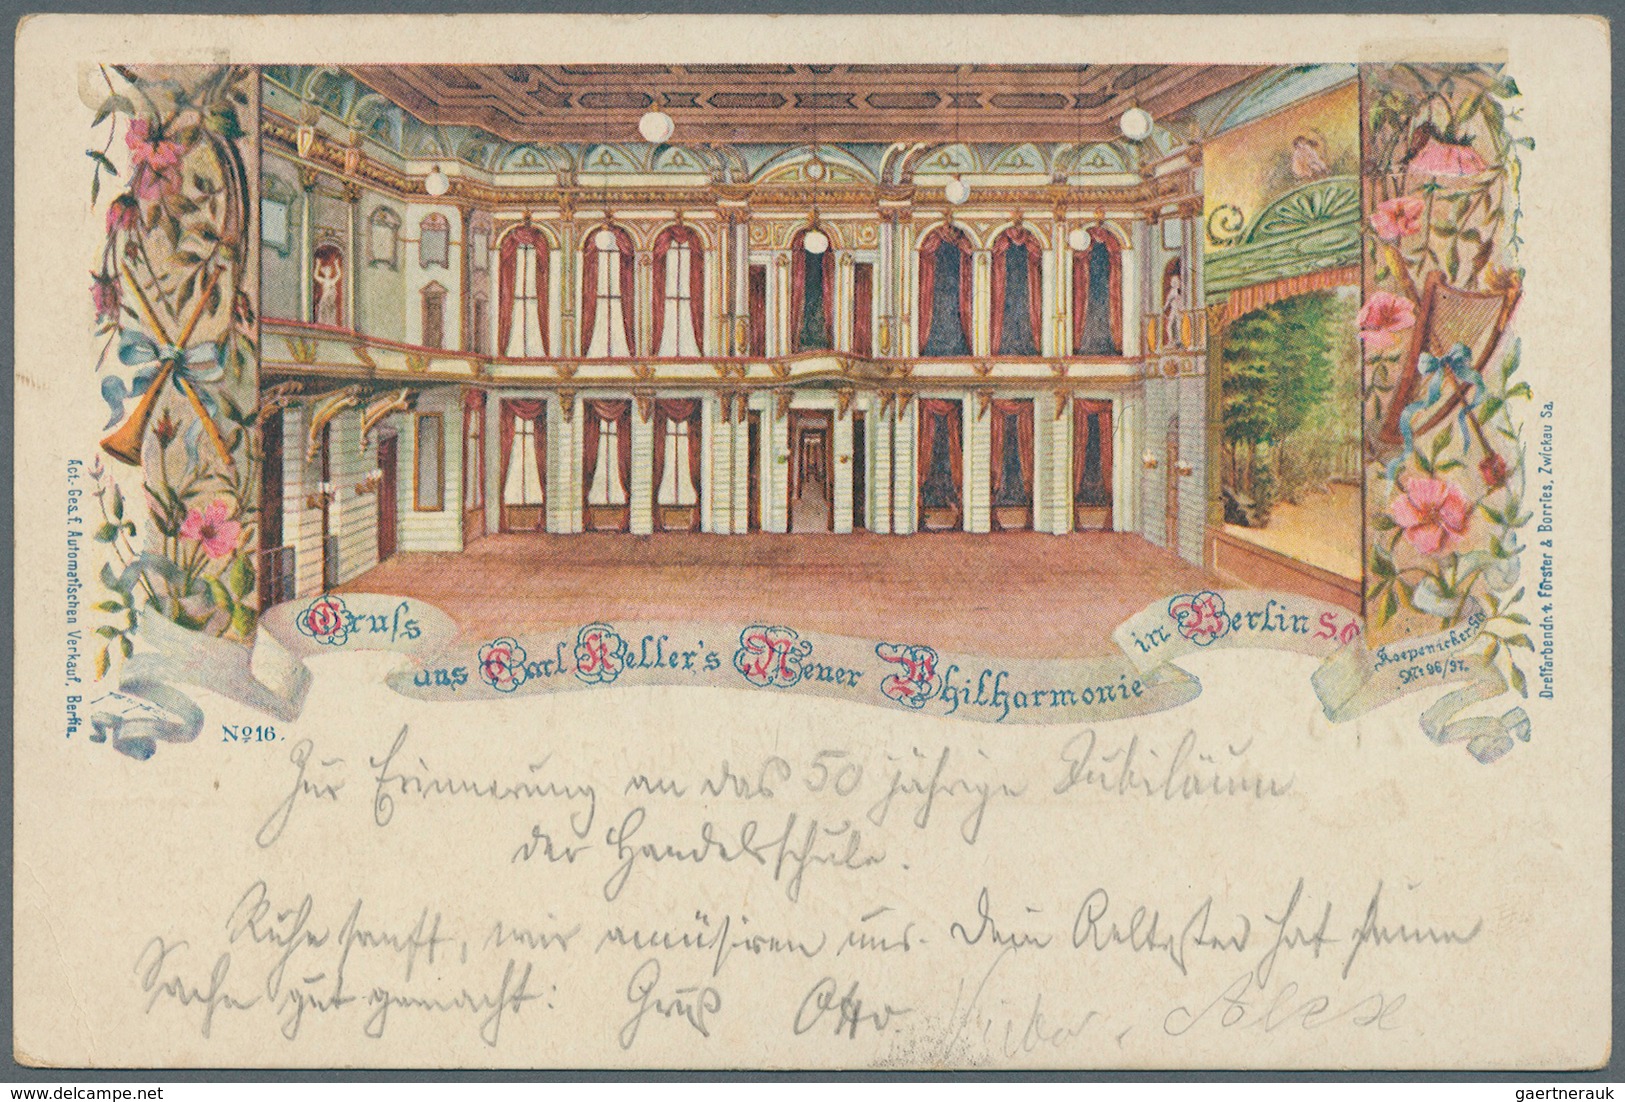 Gruss
aus Carl Keller's Neuer Philharmonie
in Berlin S.O
Koepenicker St.
No 96/97.
Act.-Ges. f. Automatischen Verkauf, Berlin.
Dreifarbendr. v. Förster & Borries, Zwickau Sa.
No 16.
Zur Erinnerung an das 50 jährige Jubiläum
der Handelsschule.
Ruhe sanft, wir amüsiren uns. Dein Aeltester hat seine
Sache gut gemacht: Gruß Otto
Alex
gaertnerauk